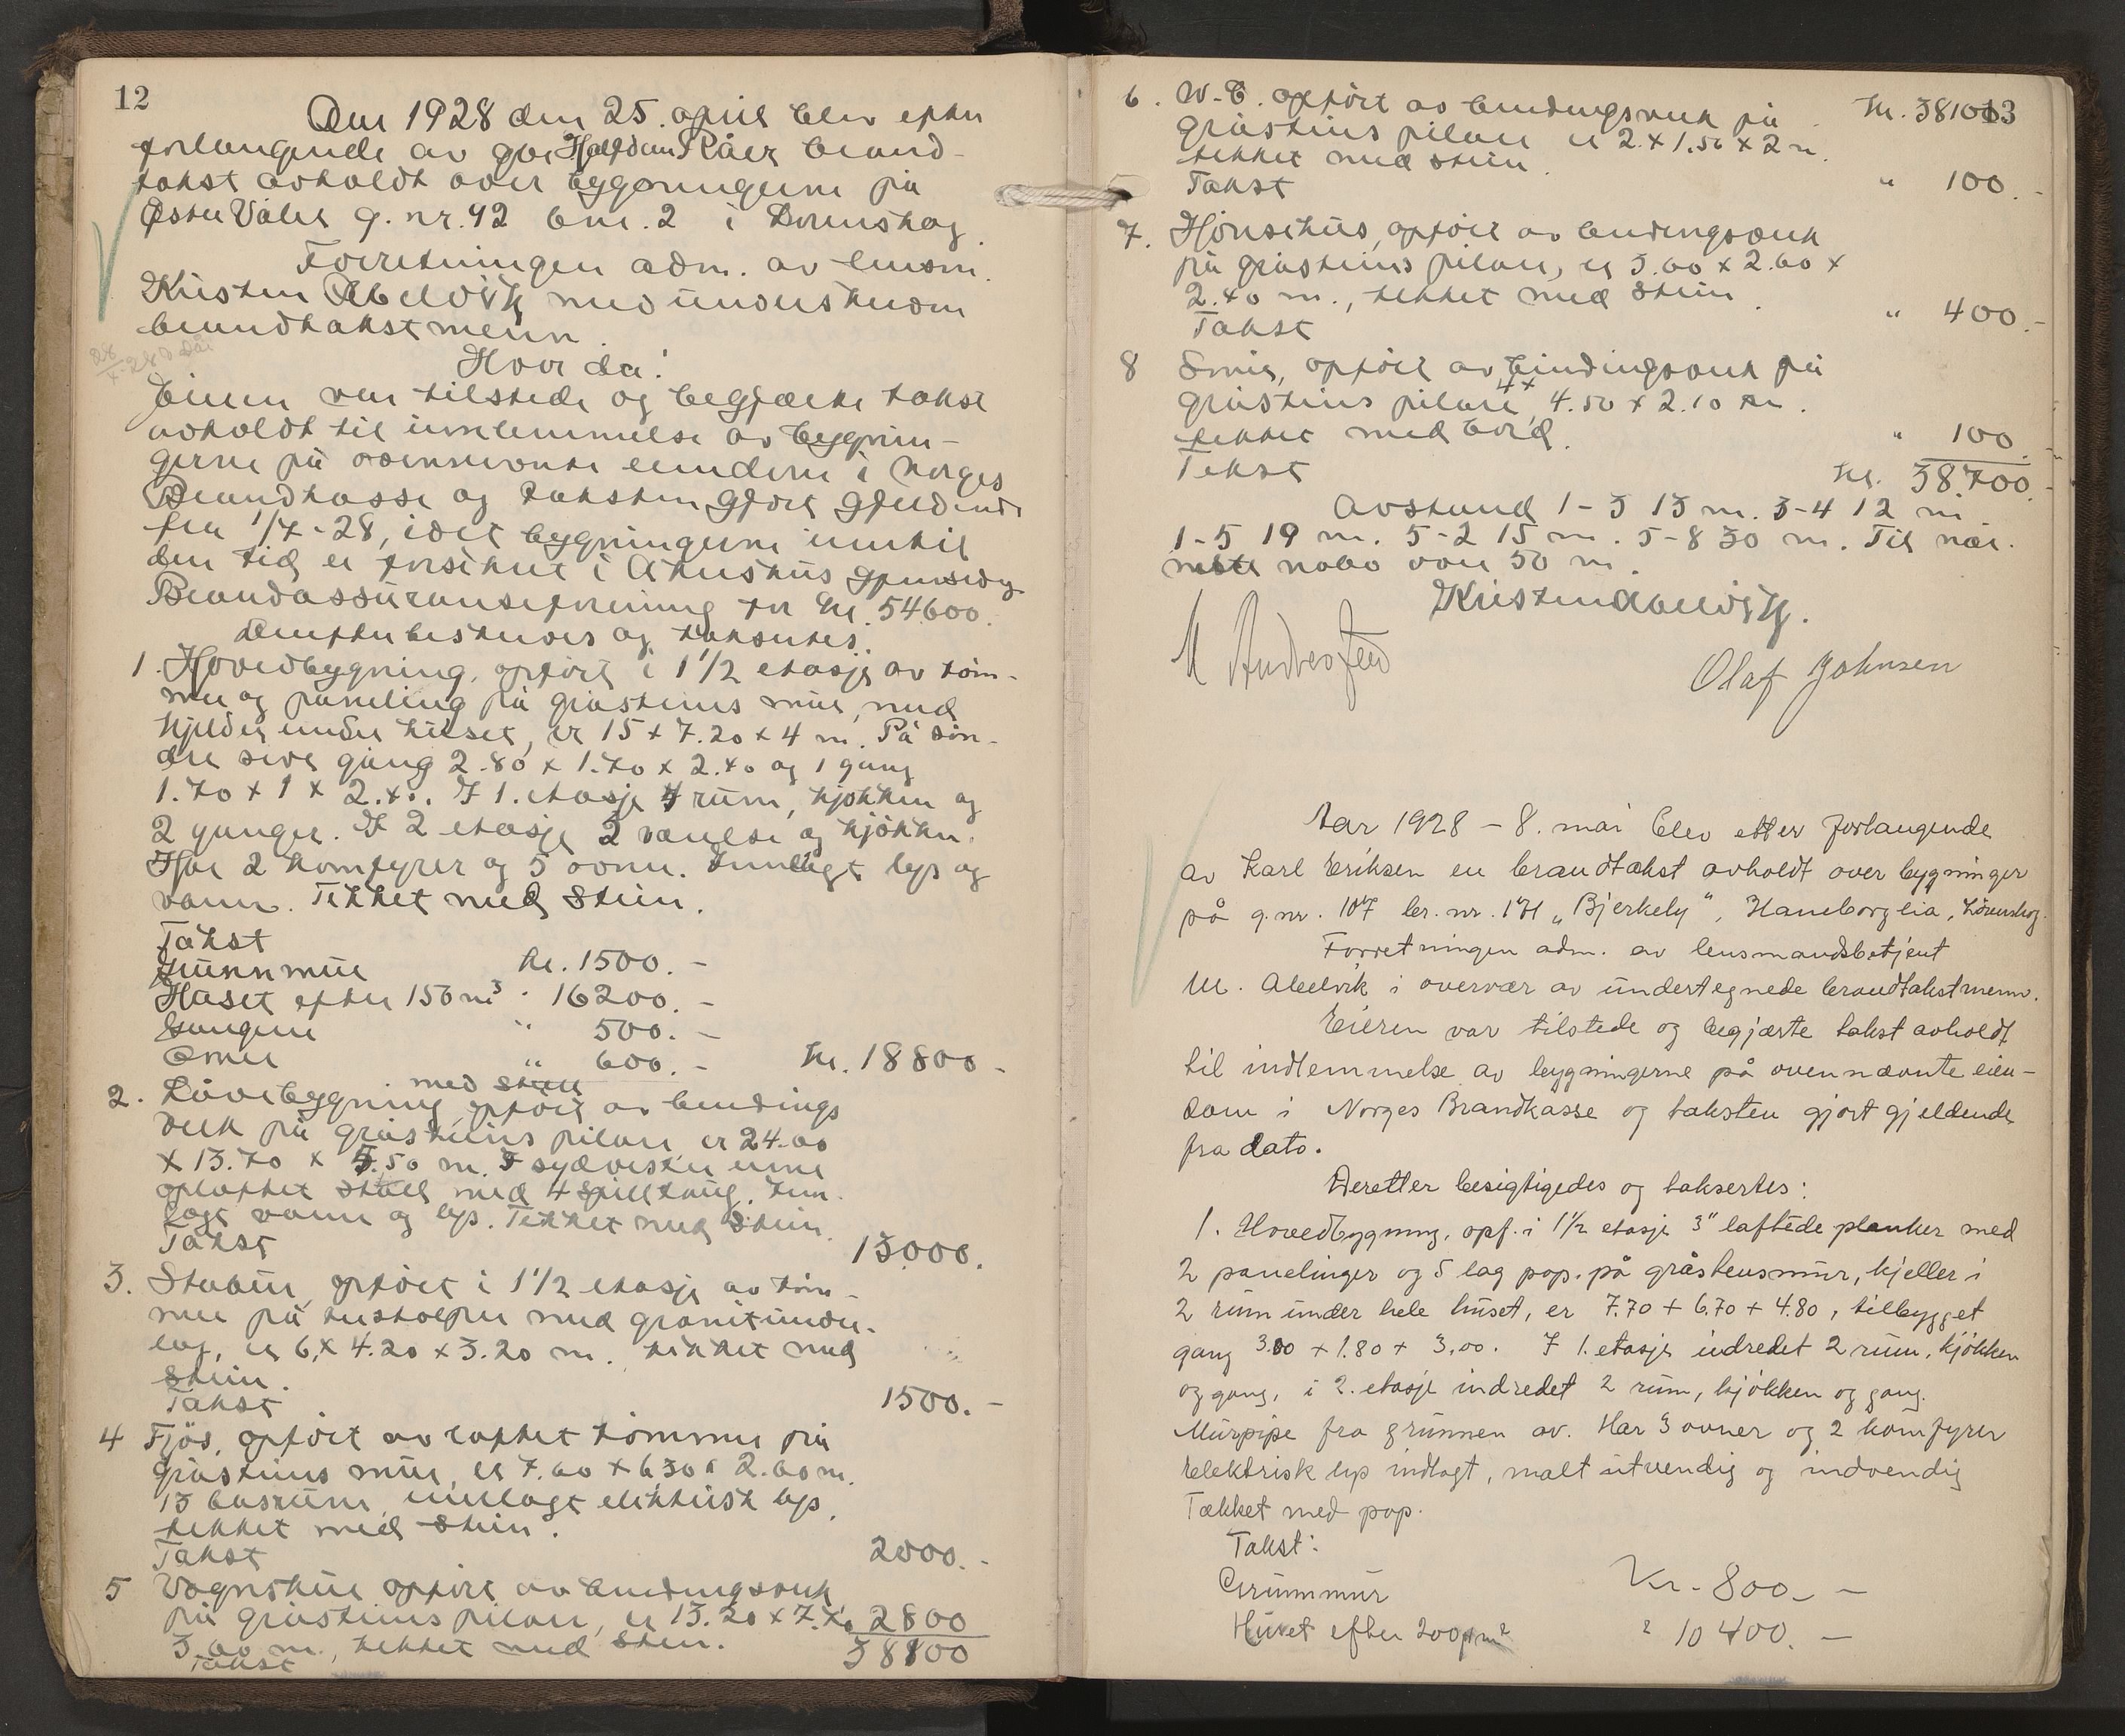 12
Aar 1928 den 25. april blev efter
forlangende av gbr Halfdan Råer brand-
takst avholdt over bygningerne på
Østre Våler g. nr. 92 bnr. 2 i Lørenskog.
Forretningen adm. av lensm.
Kristen Abelvik med undertegnede
brandtakstmenn.
Hvor da:
Eieren var tilstede og begjærte takst
avholdt til innlemmelse av bygnin-
gerne på ovennevnte eiendom i Norges
Brandkasse og taksten gjort gjeldende
fra 1/7-28, idet bygningerne inntil
den tid er forsikret i Akershus gjensidige
Brandassuranseforening for kr. 54600.
Derefter besiktiges og taksertes:
1. Hovedbygning, opført i 1 1/2 etasje av tøm-
mer og paneling på gråsteins mur, med
kjelder under huset, er 15 x 7.20 x 4 m. På søn-
dre side gang 2.80 x 1.70 x 2.40 og 1 gang
1.70 x 1 x 2.40. I 1. etasje 4 rum, kjøkken og
2 ganger. I 2 etasje 2 værelse og kjøkken.
Har 2 komfyrer og 5 ovner. Innlagt lys og
vann. Tekket med stein.
Takst
Grunnmur kr. 1500.-
Huset efter 150 m³ " 16200.-
Gangene " 500.-
Ovner " 600.- kr. 18800-
med stall
2. Låvebygning, opført av bindings
verk på gråsteins pilarer, er 24.00
x 13.70 x 5.50 m. I sydvestre ene
oplaftet stall med 4 spilltaug. Inn-
lagt vann og lys. Tekket med stein.
Takst 13.000.
3. Stabur, opført i 1 1/2 etasje av tøm-
mer på trestolper med granitunder-
lag, er 6 x 4.20 x 3.20 m. tekket med
stein.
Takst 1500.-
4 Fjøs, opført av laftet tømmer på
gråsteins mur, er 7.60 x 6.30 x 2.60 m.
13 båsrum, innlagt elektrisk lys,
tekket med stein.
Takst 2000.-
5 Vognskur opført av bindingsverk
på gråsteins pilarer, er 13.20 x 7.70 2800
3.60 m., tekket med stein. 38100
Takst
6. W-C. opført av bindingsverk på kr. 38100
gråsteins pilarer er 2 x 1.50 x 2 m.
tekket med stein.
Takst " 100.-
7. Hønsehus, opført av bindingsverk
på gråsteins pilarer, er 3.60 x 2.60 x
2.40 m., tekket med stein.
Takst " 400.-
8 Smie, opført av bindingsverk på
4 x
gråsteins pilarer, 4.50 x 2.10 m.
tekket med bord.
Takst " 100.-
kr. 38.700.-
Avstand 1-3 13 m. 3-4 12 m
1-5 19 m. 5-2 15 m. 5-8 30 m. Til nær-
meste nabo over 50 m.
Kristen Abelvik.
M
Olaf Johnsen
Aar 1928 – 8. mai blev etter forlangende
av Karl Eriksen en brandtakst avholdt over bygninger
på g.nr. 107 br. nr. 171 „Bjerkely“, Haneborglia, Lørenskog.
Forretningen adm. av lensmandsbetjent
M. Abelvik i overvær av undertegnede brandtakstmenn.
Eieren var tilstede og begjærte takst avholdt
til indlemmelse av bygningerne på ovennævnte eien-
dom i Norges Brandkasse og taksten gjort gjeldende
fra dato.
Deretter besigtigedes og taksertes:
1. Hovedbygning, opf. i 1 1/2 etasje 3" laftede planker med
2 panelinger og 5 lag pap. på gråstensmur, kjeller i
2 rum under hele huset, er 7.70 + 6.70 + 4.80, tilbygget
gang 3.00 + 1.80 + 3.00. I 1. etasje indredet 2 rum, kjøkken
og gang, i 2. etasje indredet 2 rum, kjøkken og gang.
Murpipe fra grunnen av. Har 3 ovner og 2 komfyrer
Elektrisk lys indlagt, malt utvendig og indvendig
Tækket med pap.
Takst:
Grunnmur Kr. 800.-
Huset efter 200 pr m² " 10400.-